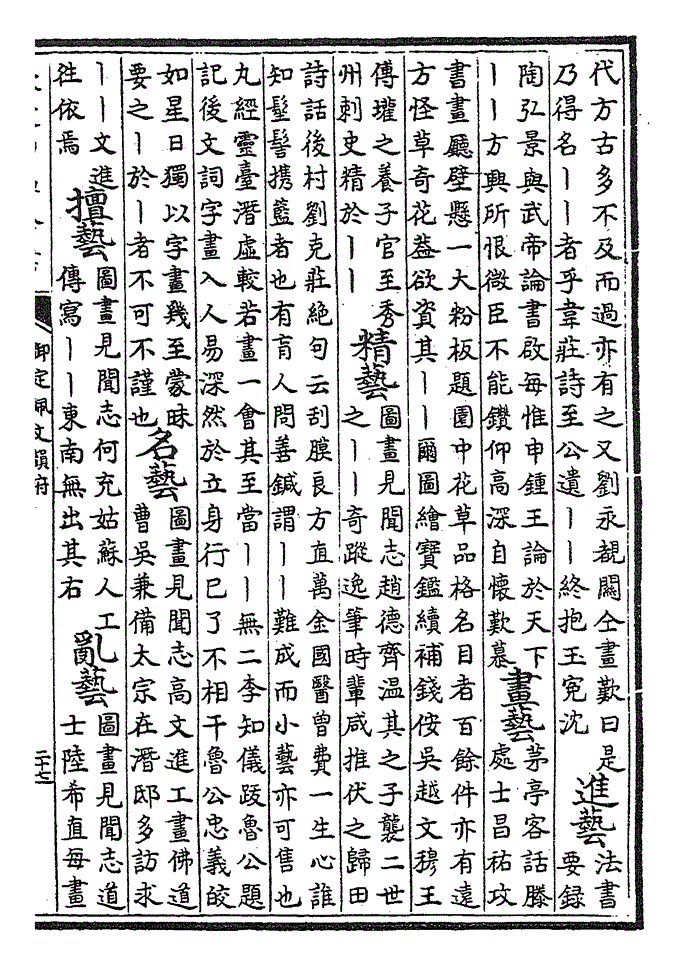 代方古多不及而過亦有之又劉永覩關仝畫歎曰是
乃得名丨丨者乎韋莊詩至公遺丨丨終抱玉寃沈
進藝
法書
要錄
陶弘景與武帝論書啟每惟申鍾王論於天下
丨丨方興所恨微臣不能鑽仰高深自懷歎慕
畫藝
茅亭客話滕
處士昌祐攻
書畫廳壁懸一大粉板題園中花草品格名目者百餘件亦有遠
方怪草奇花葢欲資其丨丨爾圖繪寶鑑續補錢侒吴越文穆王
傅瓘之養子官至秀
州刺史精於丨丨
精藝
圖畫見聞志趙德齊温其之子襲二世
之丨丨奇蹤逸筆時輩咸推伏之歸田
詩話後村劉克莊絕句云刮膜良方直萬金國醫曾費一生心誰
知髽髻携籃者也有盲人問善鍼謂丨丨難成而小藝亦可售也
九經靈臺潛虛較若畫一會其至當丨丨無二李知儀跋魯公題
記後文詞字畫入人易深然於立身行已了不相干魯公忠義皎
如星日獨以字畫幾至蒙昧
要之丨於丨者不可不謹也
名藝
圖畫見聞志高文進工畫佛道
曹吴兼備太宗在潛邸多訪求
丨丨文進
往依焉
擅藝
圖畫見聞志何充姑蘇人工
傳寫丨丨東南無出其右
亂藝
圖畫見聞志道
士陸希真每畫
御定佩文韻府
二十七